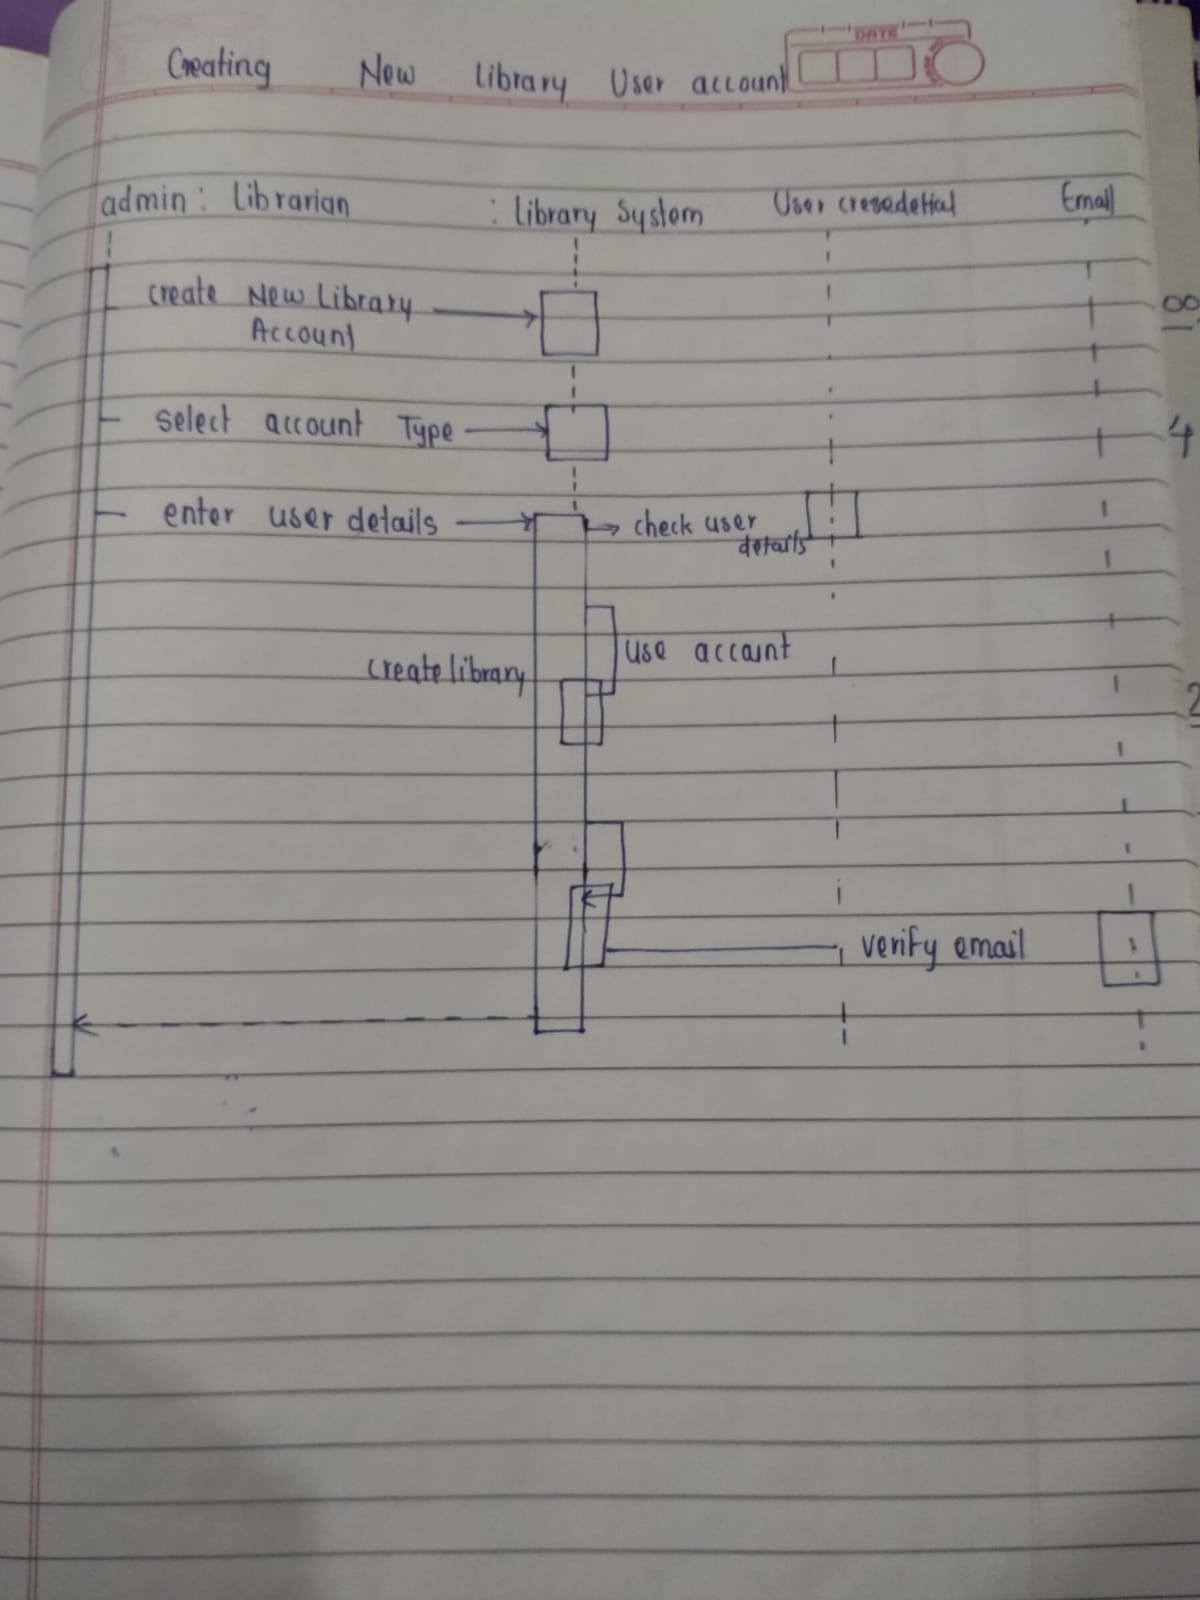 DATE
Creating New Library User account
admin: Librarian : Library System User creadetial Email
create New Library
Account
8
select account Type
4
enter user details check user
details
use account
create library
2
verify email